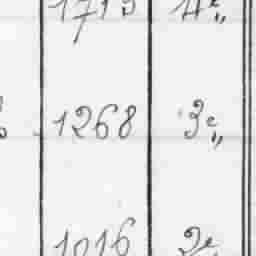 1713 4e„
1268 3e„
1016 2e